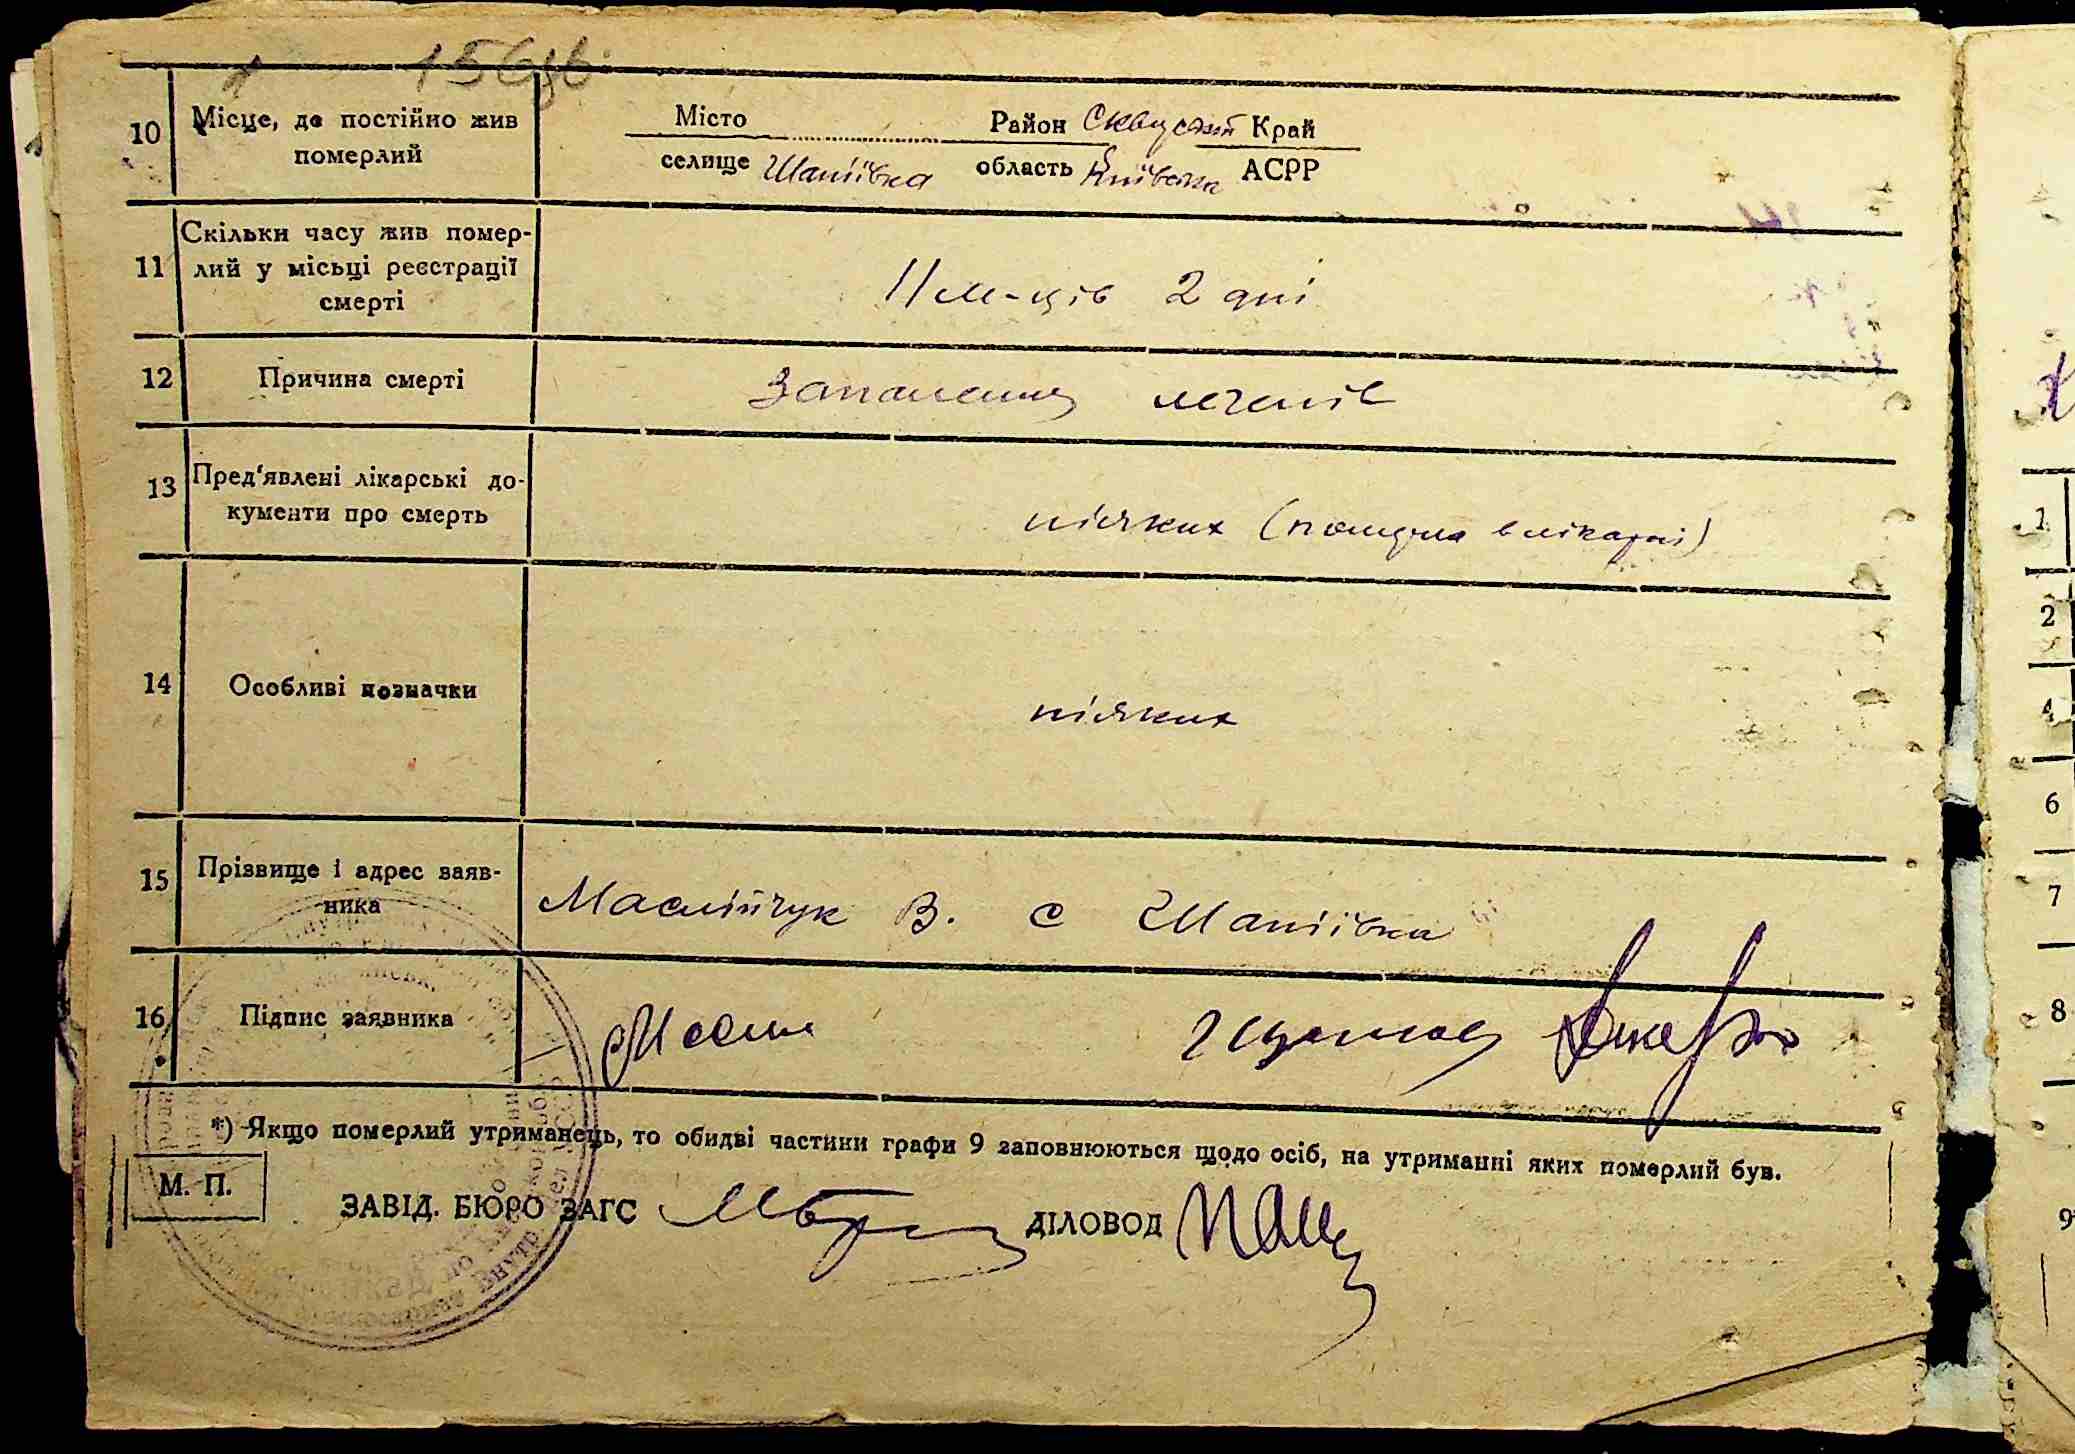 156
10 Місце, де постійно жив померлий
Місто Район Сквирський Край
селище Шапіївка область Київська АСРР
11 Скільки часу жив помер-
лий у місьці реєстрації
смерті
11 м-ців 2 дні
12 Причина смерті
Запалення легенів
13 Пред'явлені лікарські до-
кументи про смерть
ніяких (померла в лікарні)
14 Особливі позначки
ніяких
15 Прізвище і адрес заяв-
ника
Маслійчук В. с Шапіївка
16 Підпис заявника
*) Якщо померлий утриманець, то обидві частини графи 9 заповнюються щодо осіб, на утриманні яких померлий був.
М. П.
ЗАВІД. БЮРО ЗАГС
ДІЛОВОД
1
2
4
6
7
8
9